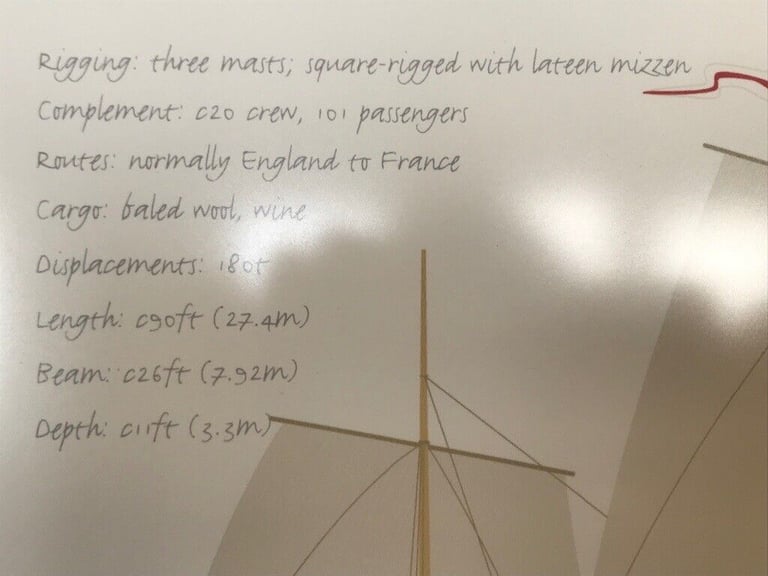 Rigging: three masts; square-rigged with lateen mizzen
Complement: c20 crew, 101 passengers
Routes: normally England to France
Cargo: baled wool, wine
Displacements: 180t
Length: c90ft (27.4m)
Beam: c26ft (7.92m)
Depth: c11ft (3.3m)